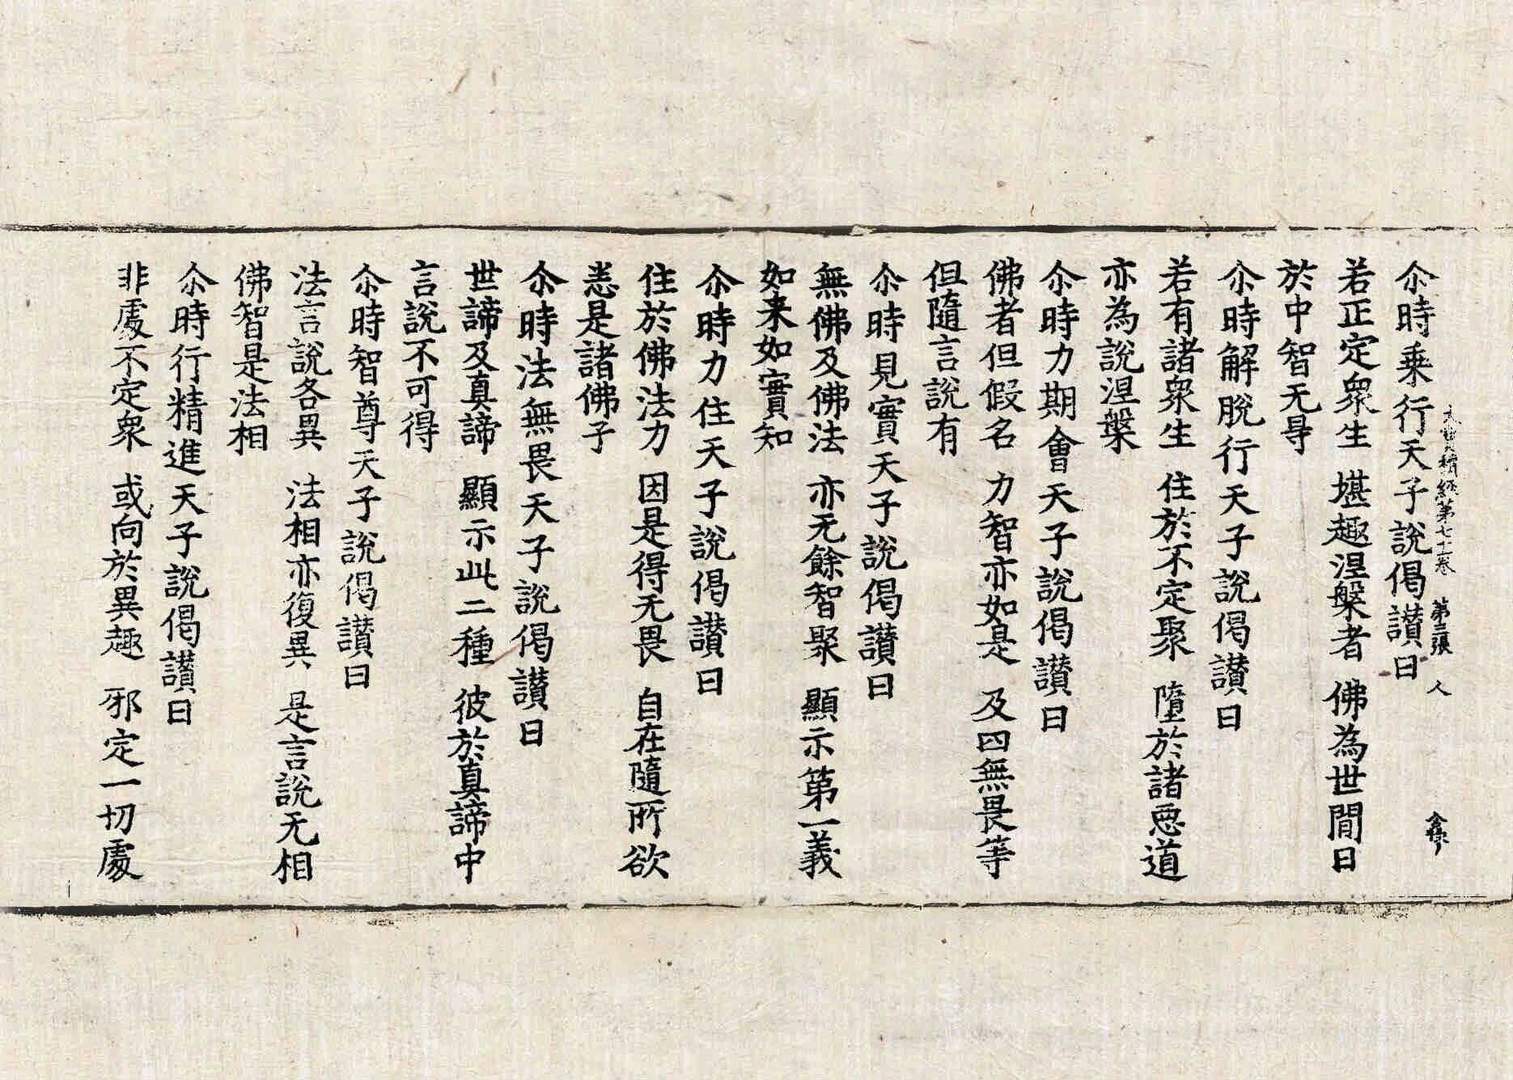 尒時乗行天子說偈讃曰
大寳積經第七十一卷 第三張 人
若正定衆生 堪趣涅槃者 佛為世間日
於中智无㝵
尒時解脫行天子說偈讃曰
若有諸衆生 住於不定聚 墮於諸惡道
亦為說涅槃
尒時力期會天子說偈讃曰
佛者但假名 力智亦如是 及四無畏等
但隨言說有
尒時見實天子說偈讃曰
無佛及佛法 亦无餘智聚 顯示第一義
如来如實知
尒時力住天子說偈讃曰
住於佛法力 因是得无畏 自在隨所欲
悉是諸佛子
尒時法無畏天子說偈讃曰
世諦及真諦 顯示此二種 彼於真諦中
言說不可得
尒時智尊天子說偈讃曰
法言說各異 法相亦復異 是言說无相
佛智是法相
尒時行精進天子說偈讃曰
非處不定衆 或向於異趣 邪定一切處